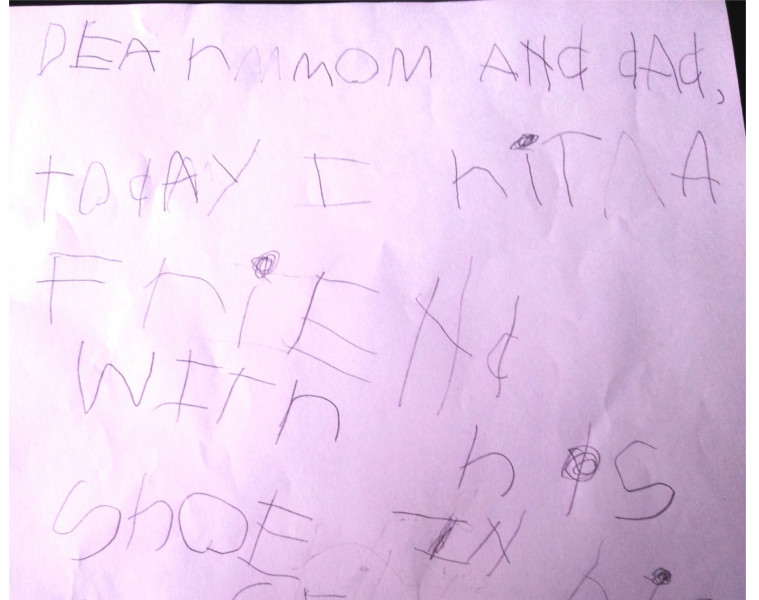 DEAr MOM ANd dAd,
TOdAY I hiT A
FriENd
WITh
hiS
ShOE IN